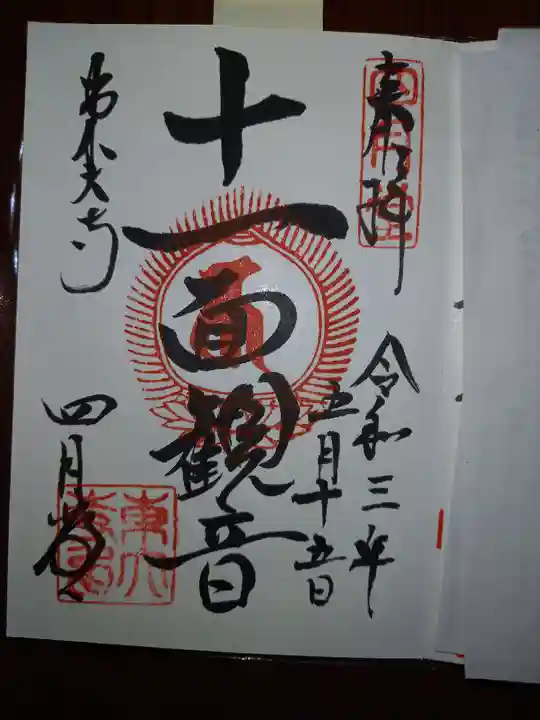 奉拝
令和三年
五月十五日
十一面觀音
東大寺
四月堂